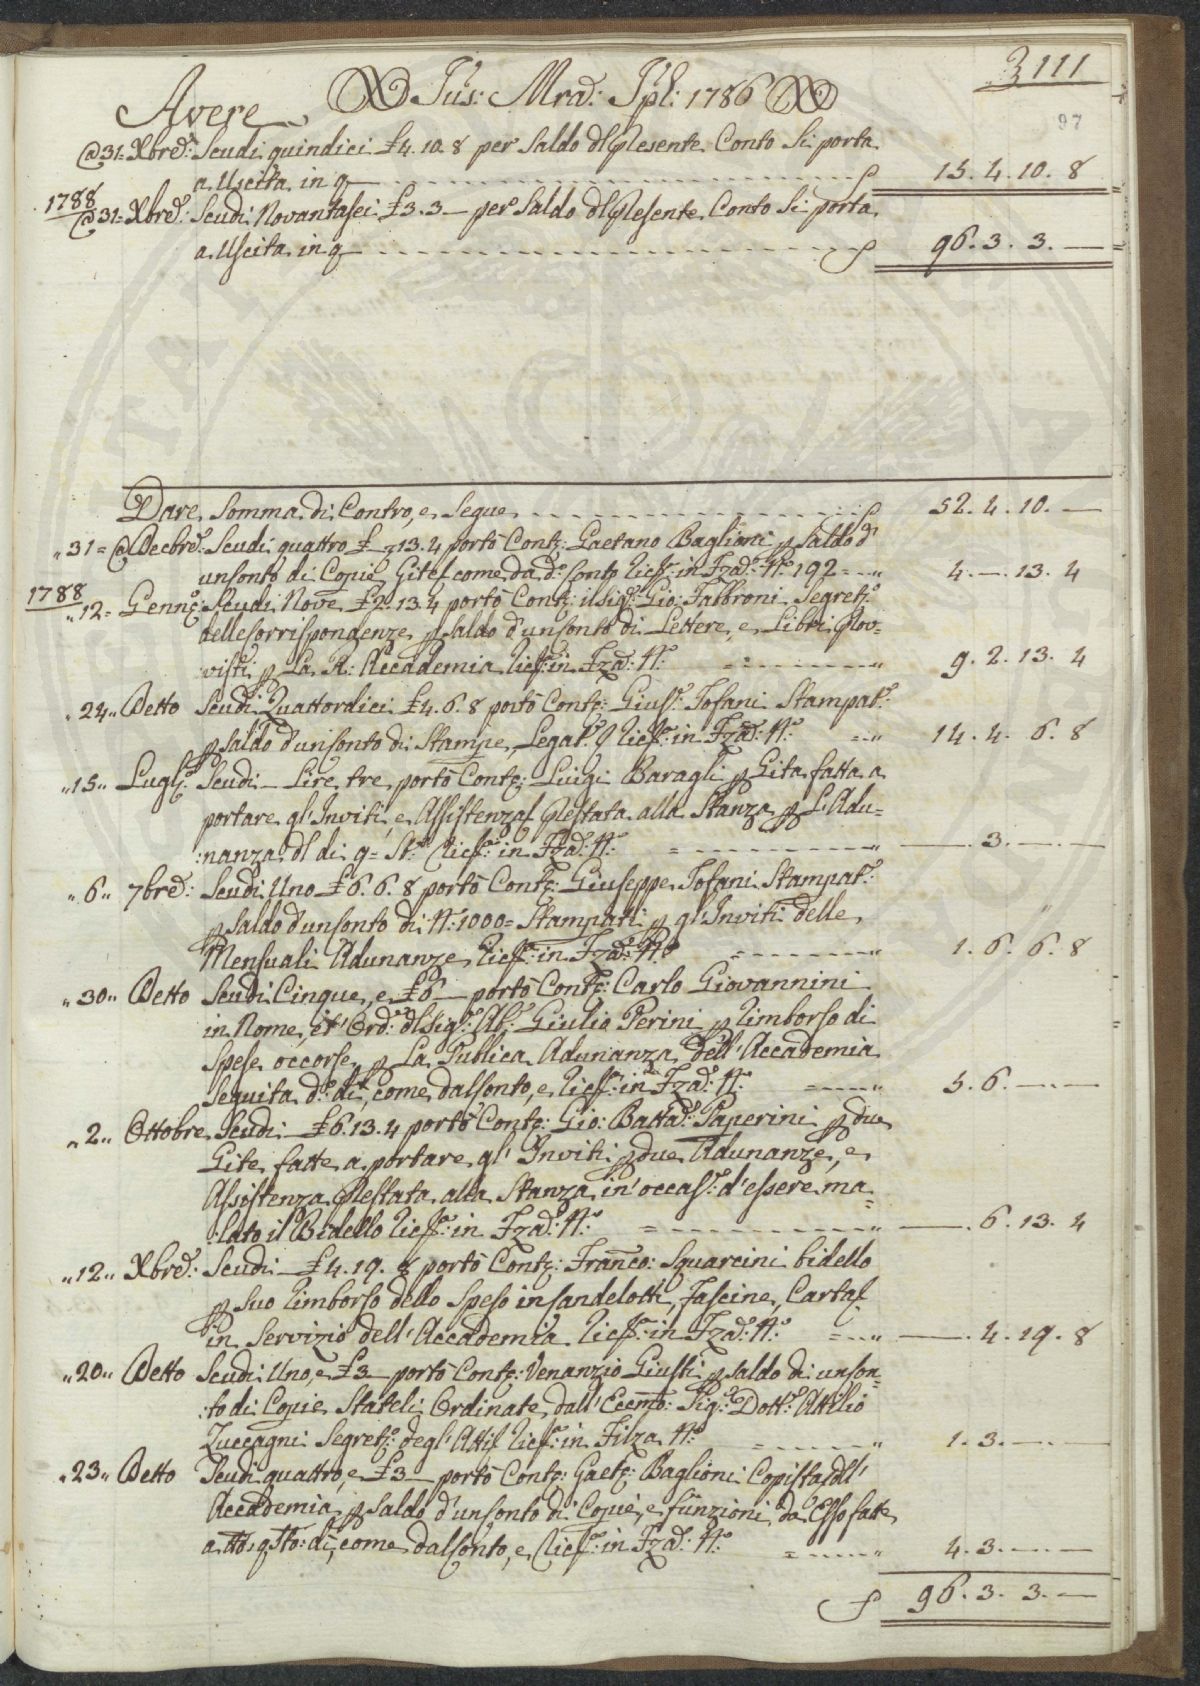 3111
Jus: Mrd: Jpl: 1786
97
Avere
@ 31= Xbre: Scudi quindici £4. 10. 8 per Saldo dl Presente Conto Si porta
a Uscita in q 15. 4. 10. 8
1788
@ 31= Xbre: Scudi Novantasei £3. 3 — per Saldo dl Presente Conto Si porta
a Uscita in q 96. 3. 3. —
Dare Somma di Contro, e Segue 52. 4. 10. —
„ 31 = @ Decbre: Scudi quattro £ — 13. 4 portò Cont: Gaetano Baglioni p Saldo d'
un Conto di Copie, Gite come da do: Conto Ricev: in Fza: No: 192 — „ 4. — . 13. 4
1788
„ 12 = Genno: Scudi Nove £2. 13. 4 portò Cont: il Sigr: Gio: Fabbroni Segreto:
delle Corrispondenze p Saldo d'un Conto di Lettere, e Libri Prov=
visti p La R: Accademia Ricev: in Fza: No: 9. 2. 13. 4
„ 24 „ Detto Scudi Quattordici £4. 6. 8 portò Cont: Gius: Tofani Stampat:
p Saldo d'un Conto di Stampe, Legat: Ricev: in Fza: No: 14. 4. 6. 8
„ 15 „ Lugl: Scudi — Lire tre portò Cont: Luigi Baragli p Gita fatta a
portare gl'Inviti, e Assistenza Prestata alla Stanza p L'Adu=
:nanza dl di 9= Ricev: in Fza: No: — . 3. — . —
„ 6 „ 7bre: Scudi Uno £6. 6. 8 portò Cont: Giuseppe Tofani Stampat:
p Saldo d'un Conto di No: 1000= Stampati p gl'Inviti delle
Mensuali Adunanze, Ricev: in Fza: No: 1. 6. 6. 8
„ 30 „ Detto Scudi Cinque, e £6 — portò Cont: Carlo Giovannini
in Nome, et Ord: dl Sigr: Ab: Giulio Perini p Rimborso di
Spese occorse p La Publica Adunanza dell'Accademia
Seguita do: dì, come dal Conto, e Ricev: in Fza: No: 5. 6. — . —
„ 2 „ Ottobre Scudi — £6. 13. 4 portò Cont: Gio: Batta: Paperini p due
Gite fatte a portare gl'Inviti p due Adunanze, e
Assistenza Prestata alla Stanza in occas: d'essere ma=
:lato il Bidello Ricev: in Fza: No: — . 6. 13. 4
„ 12 „ Xbre: Scudi — £4. 19. 8 portò Cont: Franco: Squarcini bidello
p Suo Rimborso dello Speso in Candelotti, Fascine, Carta
in Servizio dell'Accademia Ricev: in Fza: No: — . 4. 19. 8
„ 20 „ Detto Scudi Uno, e £3 — portò Cont: Venanzio Giusti p Saldo di un Con=
:to di Copie Stateli Ordinate dall'Eccmo: Sigr: Dott: Attilio
Zuccagni Segret: degl'Atti Ricev: in Filza No: 1. 3. — . —
„ 23 „ Detto Scudi quattro, e £3 — portò Cont: Gaet: Baglioni Copista dell'
Accademia p Saldo d'un Conto di Copie, e funzioni da Esso fatte
a tto: qsto: dì, come dal Conto, e Ricev: in Fza: No: 4. 3. — . —
96. 3. 3. —